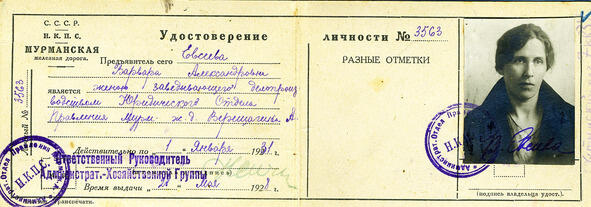 С. С. С. Р.
Н. К. П. С.
МУРМАНСКАЯ
железная дорога.
Удостоверение
Предъявитель сего Евсеева
Варвара Александровна
является женою заведывающего делопроиз
водством Юридического Отдела
Правления Мурм. ж. д. Верещагина А.
Действительно по 1 Января 1931 г.
Ответственный Руководитель
Администрат.-Хозяйственной Группы
Время выдачи Мая 1928
№ 3563
Н.К.П.С.
ЛИЧНОСТИ № 3563
РАЗНЫЕ ОТМЕТКИ
Н.К.П.С.
(подпись владельца удост.)